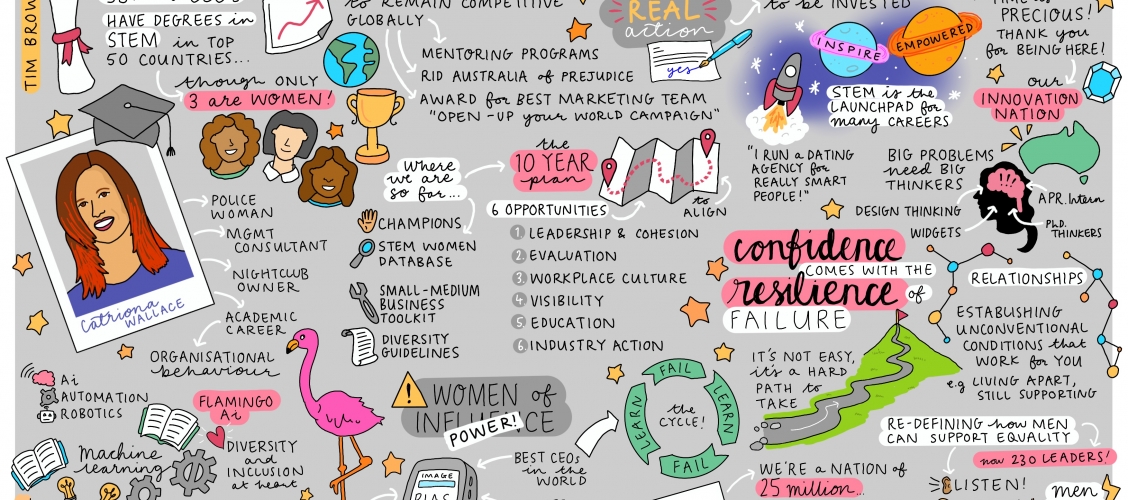 TIM BROW
HAVE DEGREES in
STEM in TOP
50 COUNTRIES...
though ONLY
3 are WOMEN!
to REMAIN COMPETITIVE
GLOBALLY
MENTORING PROGRAMS
RID AUSTRALIA of PREJUDICE
AWARD for BEST MARKETING TEAM
"OPEN-UP your WORLD CAMPAIGN"
REAL
action
yes
to BE INVESTED
INSPIRE
EMPOWERED
STEM is the
LAUNCHPAD for
many CAREERS
PRECIOUS!
THANK you
for BEING HERE!
our
INNOVATION
NATION
Catriona
WALLACE
POLICE
WOMAN
MGMT
CONSULTANT
NIGHTCLUB
OWNER
ACADEMIC
CAREER
ORGANISATIONAL
behaviour
where
we are
so far...
CHAMPIONS
STEM WOMEN
DATABASE
SMALL-MEDIUM
BUSINESS
TOOLKIT
DIVERSITY
GUIDELINES
the
10 YEAR
plan
to
ALIGN
6 OPPORTUNITIES
1 LEADERSHIP & COHESION
2 EVALUATION
3 WORKPLACE CULTURE
4 VISIBILITY
5 EDUCATION
6 INDUSTRY ACTION
"I RUN a DATING
AGENCY for
REALLY SMART
PEOPLE!"
BIG PROBLEMS
need BIG
THINKERS
DESIGN THINKING
WIDGETS
APR.Intern
PhD.
THINKERS
confidence
COMES WITH THE
resilience of
FAILURE
IT'S NOT EASY,
it's a HARD
PATH to
TAKE
RELATIONSHIPS
ESTABLISHING
UNCONVENTIONAL
CONDITIONS that
WORK for YOU
e.g LIVING APART,
STILL SUPPORTING
Ai
AUTOMATION
ROBOTICS
Machine
learning
FLAMINGO
Ai
DIVERSITY
and
INCLUSION
at heart
WOMEN of
INFLUENCE
POWER!
IMAGE
BIAS
BEST CEOs
in the
WORLD
the
CYCLE!
FAIL
LEARN
FAIL
LEARN
RE-DEFINING how MEN
CAN SUPPORT EQUALITY
now 230 LEADERS!
LISTEN!
men
WE'RE a NATION of
25 million...